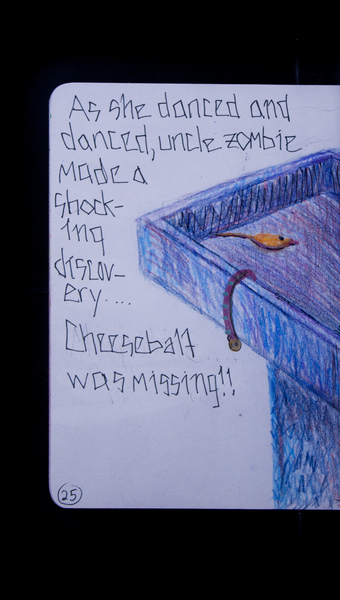 As she danced and
danced, uncle zombie
made a
shock-
ing
discov-
ery....
Cheeseball
was missing!!
25